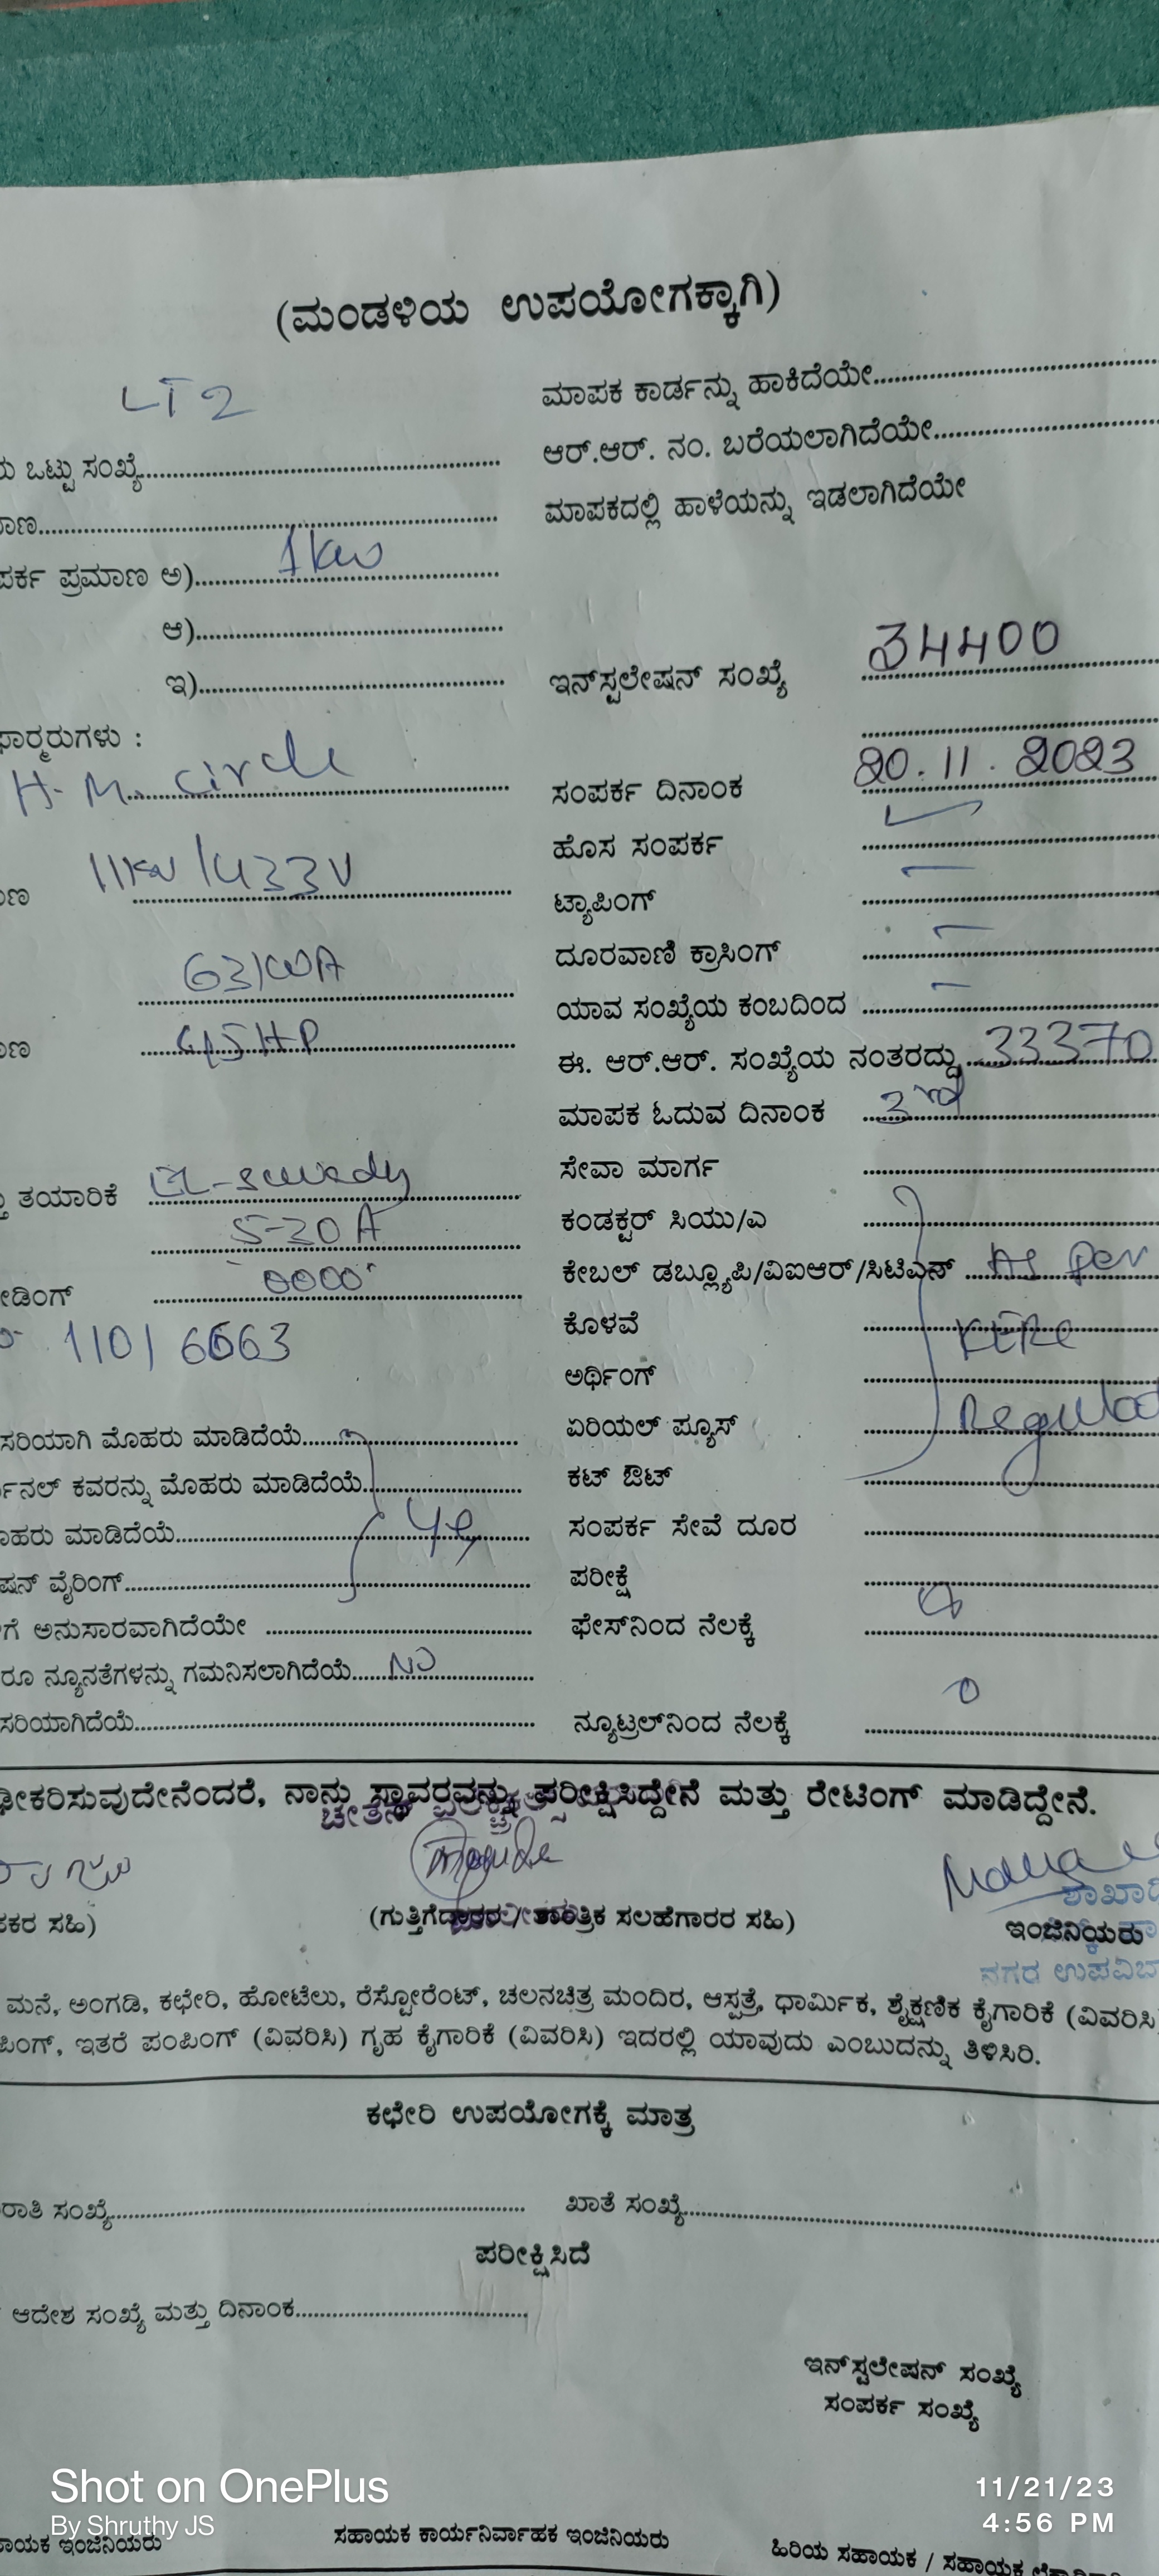 (ಮಂಡಳಿಯ ಉಪಯೋಗಕ್ಕಾಗಿ)
LT 2
ಮಾಪಕ ಕಾರ್ಡನ್ನು ಹಾಕಿದೆಯೇ
ಒಟ್ಟು ಸಂಖ್ಯೆ
ಆರ್.ಆರ್. ನಂ. ಬರೆಯಲಾಗಿದೆಯೇ
ಮಾಪಕದಲ್ಲಿ ಹಾಳೆಯನ್ನು ಇಡಲಾಗಿದೆಯೇ
ಪ್ರಮಾಣ ಅ) 1kw
ಆ)
ಇ)
ಇನ್‌ಸ್ಟಲೇಷನ್ ಸಂಖ್ಯೆ 34400
ಫಾರ್ಮರುಗಳು :
H.M. circle
ಸಂಪರ್ಕ ದಿನಾಂಕ 20.11.2023
ಹೊಸ ಸಂಪರ್ಕ
11kv/433V
ಟ್ಯಾಪಿಂಗ್ –
ದೂರವಾಣಿ ಕ್ರಾಸಿಂಗ್ –
ಯಾವ ಸಂಖ್ಯೆಯ ಕಂಬದಿಂದ –
ಈ. ಆರ್.ಆರ್. ಸಂಖ್ಯೆಯ ನಂತರದ್ದು 33370
ಮಾಪಕ ಓದುವ ದಿನಾಂಕ 3rd
ಸೇವಾ ಮಾರ್ಗ
ತಯಾರಿಕೆ
5-30A
ಕಂಡಕ್ಟರ್ ಸಿಯು/ಎ
ಕೇಬಲ್ ಡಬ್ಲ್ಯೂಪಿ/ವಿಐಆರ್/ಸಿಟಿಎಸ್ As per
ಕೊಳವೆ KERC
ಅರ್ಥಿಂಗ್
ಏರಿಯಲ್ ಪ್ಯೂಸ್
ಸರಿಯಾಗಿ ಮೊಹರು ಮಾಡಿದೆಯೆ
ಕವರನ್ನು ಮೊಹರು ಮಾಡಿದೆಯೆ
ಕಟ್ ಔಟ್
ಮಾಡಿದೆಯೆ
ಸಂಪರ್ಕ ಸೇವೆ ದೂರ
ವೈರಿಂಗ್
ಪರೀಕ್ಷೆ
ಅನುಸಾರವಾಗಿದೆಯೇ
ಫೇಸ್‌ನಿಂದ ನೆಲಕ್ಕೆ
ನ್ಯೂನತೆಗಳನ್ನು ಗಮನಿಸಲಾಗಿದೆಯೆ NO
ಸರಿಯಾಗಿದೆಯೆ
ನ್ಯೂಟ್ರಲ್‌ನಿಂದ ನೆಲಕ್ಕೆ 0
ನಾನು ಸ್ಥಾವರವನ್ನು ಪರೀಕ್ಷಿಸಿದ್ದೇನೆ ಮತ್ತು ರೇಟಿಂಗ್ ಮಾಡಿದ್ದೇನೆ.
ಸಹಿ)
(ಗುತ್ತಿಗೆದಾರರ / ತಾಂತ್ರಿಕ ಸಲಹೆಗಾರರ ಸಹಿ)
ಇಂಜಿನಿಯರು
ನಗರ
ಮನೆ, ಅಂಗಡಿ, ಕಛೇರಿ, ಹೋಟೆಲು, ರೆಸ್ಟೋರೆಂಟ್, ಚಲನಚಿತ್ರ ಮಂದಿರ, ಆಸ್ಪತ್ರೆ, ಧಾರ್ಮಿಕ, ಶೈಕ್ಷಣಿಕ ಕೈಗಾರಿಕೆ (ವಿವರಿಸಿ
ಇತರೆ ಪಂಪಿಂಗ್ (ವಿವರಿಸಿ) ಗೃಹ ಕೈಗಾರಿಕೆ (ವಿವರಿಸಿ) ಇದರಲ್ಲಿ ಯಾವುದು ಎಂಬುದನ್ನು ತಿಳಿಸಿರಿ.
ಕಛೇರಿ ಉಪಯೋಗಕ್ಕೆ ಮಾತ್ರ
ಸಂಖ್ಯೆ
ಖಾತೆ ಸಂಖ್ಯೆ
ಪರೀಕ್ಷಿಸಿದೆ
ಆದೇಶ ಸಂಖ್ಯೆ ಮತ್ತು ದಿನಾಂಕ
ಇನ್‌ಸ್ಟಲೇಷನ್ ಸಂಖ್ಯೆ
ಸಂಪರ್ಕ ಸಂಖ್ಯೆ
Shot on OnePlus
By Shruthy JS
11/21/23
4:56 PM
ಇಂಜಿನಿಯರು
ಸಹಾಯಕ ಕಾರ್ಯನಿರ್ವಾಹಕ ಇಂಜಿನಿಯರು
ಹಿರಿಯ ಸಹಾಯಕ / ಸಹಾಯಕ